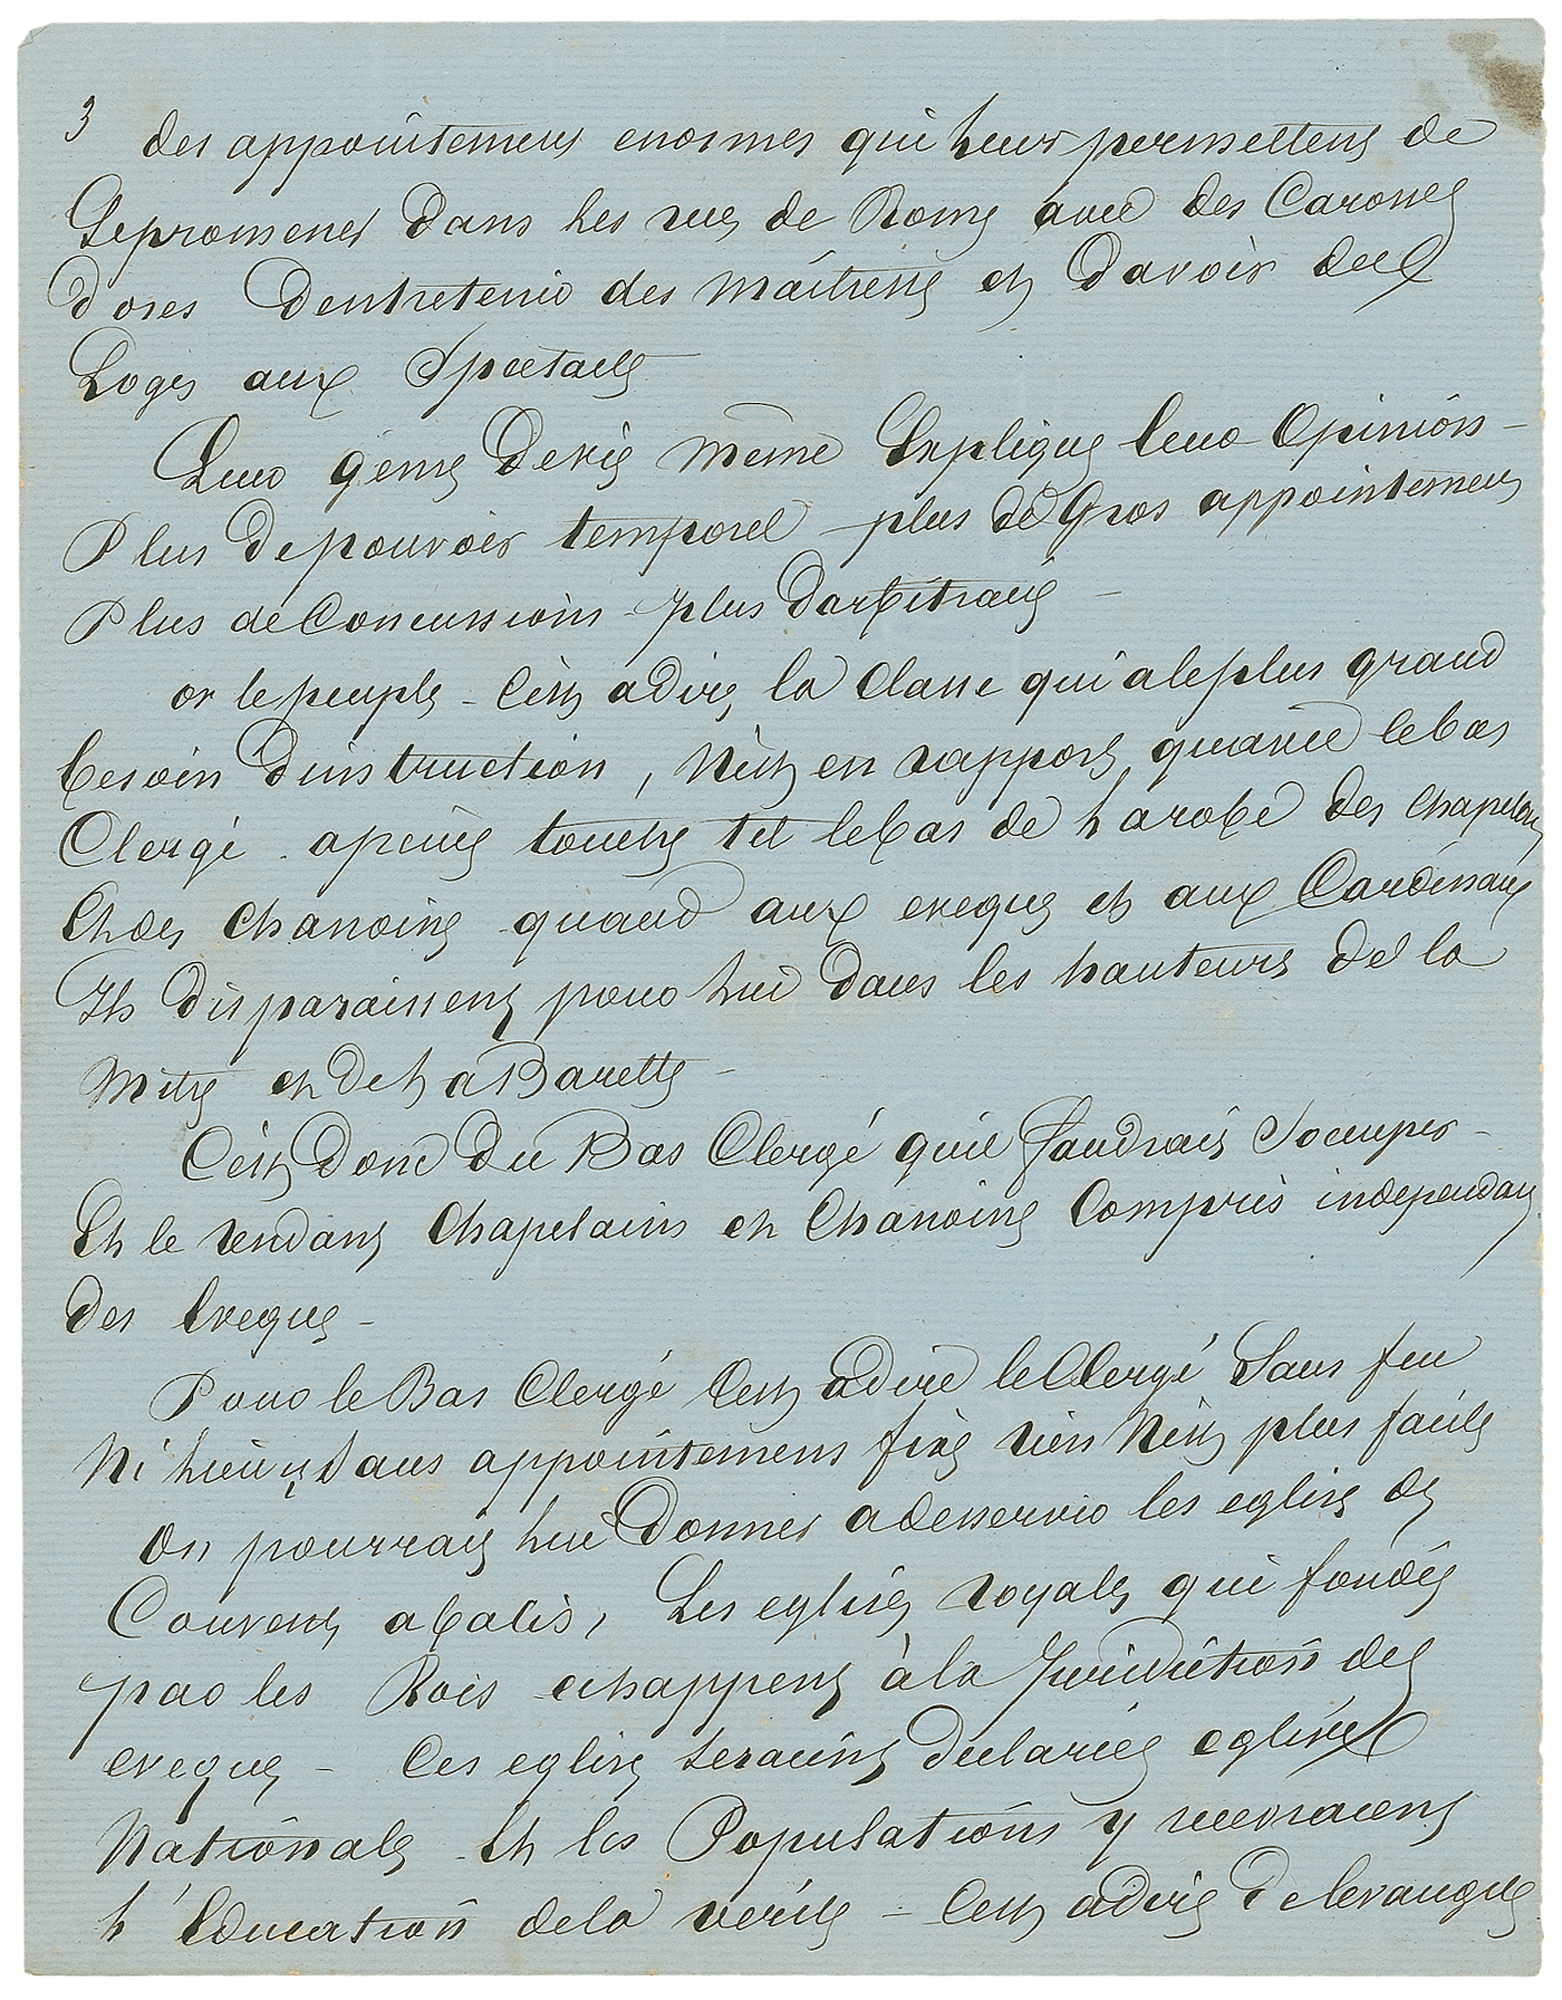 3 des appointements enormes qui leur permettent de
se promener dans les rues de Rome avec des Carosses
dorés d'entretenir des maitresses et d'avoir des
Loges aux Spectacles
Leur genre de vie même explique leur opinion -
Plus de pouvoir temporel - plus de gros appointements
Plus de Concussions - plus d'arbitraire -
or le peuple - c'est a dire, la classe qui a le plus grand
besoin d'instruction, n'est en rapport qu'avec le bas
Clergé - apeine touche t il le bas de la robe des chapelains
et des chanoines - quand aux eveques et aux Cardinaux
Ils disparaissent pour lui dans les hauteurs de la
mitre et de la Barette -
C'est donc du Bas Clergé qu'il faudrait s'occuper -
Et le rendant chapelains et chanoines compris independant
des Eveques -
Pour le Bas Clergé c'est a dire le Clergé sans feu
ni lieu, sans appointemens fixes rien n'est plus facile
on pourrait lui donner a desservir les eglises de
Couvents abolis, les eglises royales qui fondées
par les Rois echappent à la juridiction des
eveques - Ces eglises seraient declarées eglises
Nationales - Et les Populations y recevraient
l'Education de la verité - c'est a dire de levangile